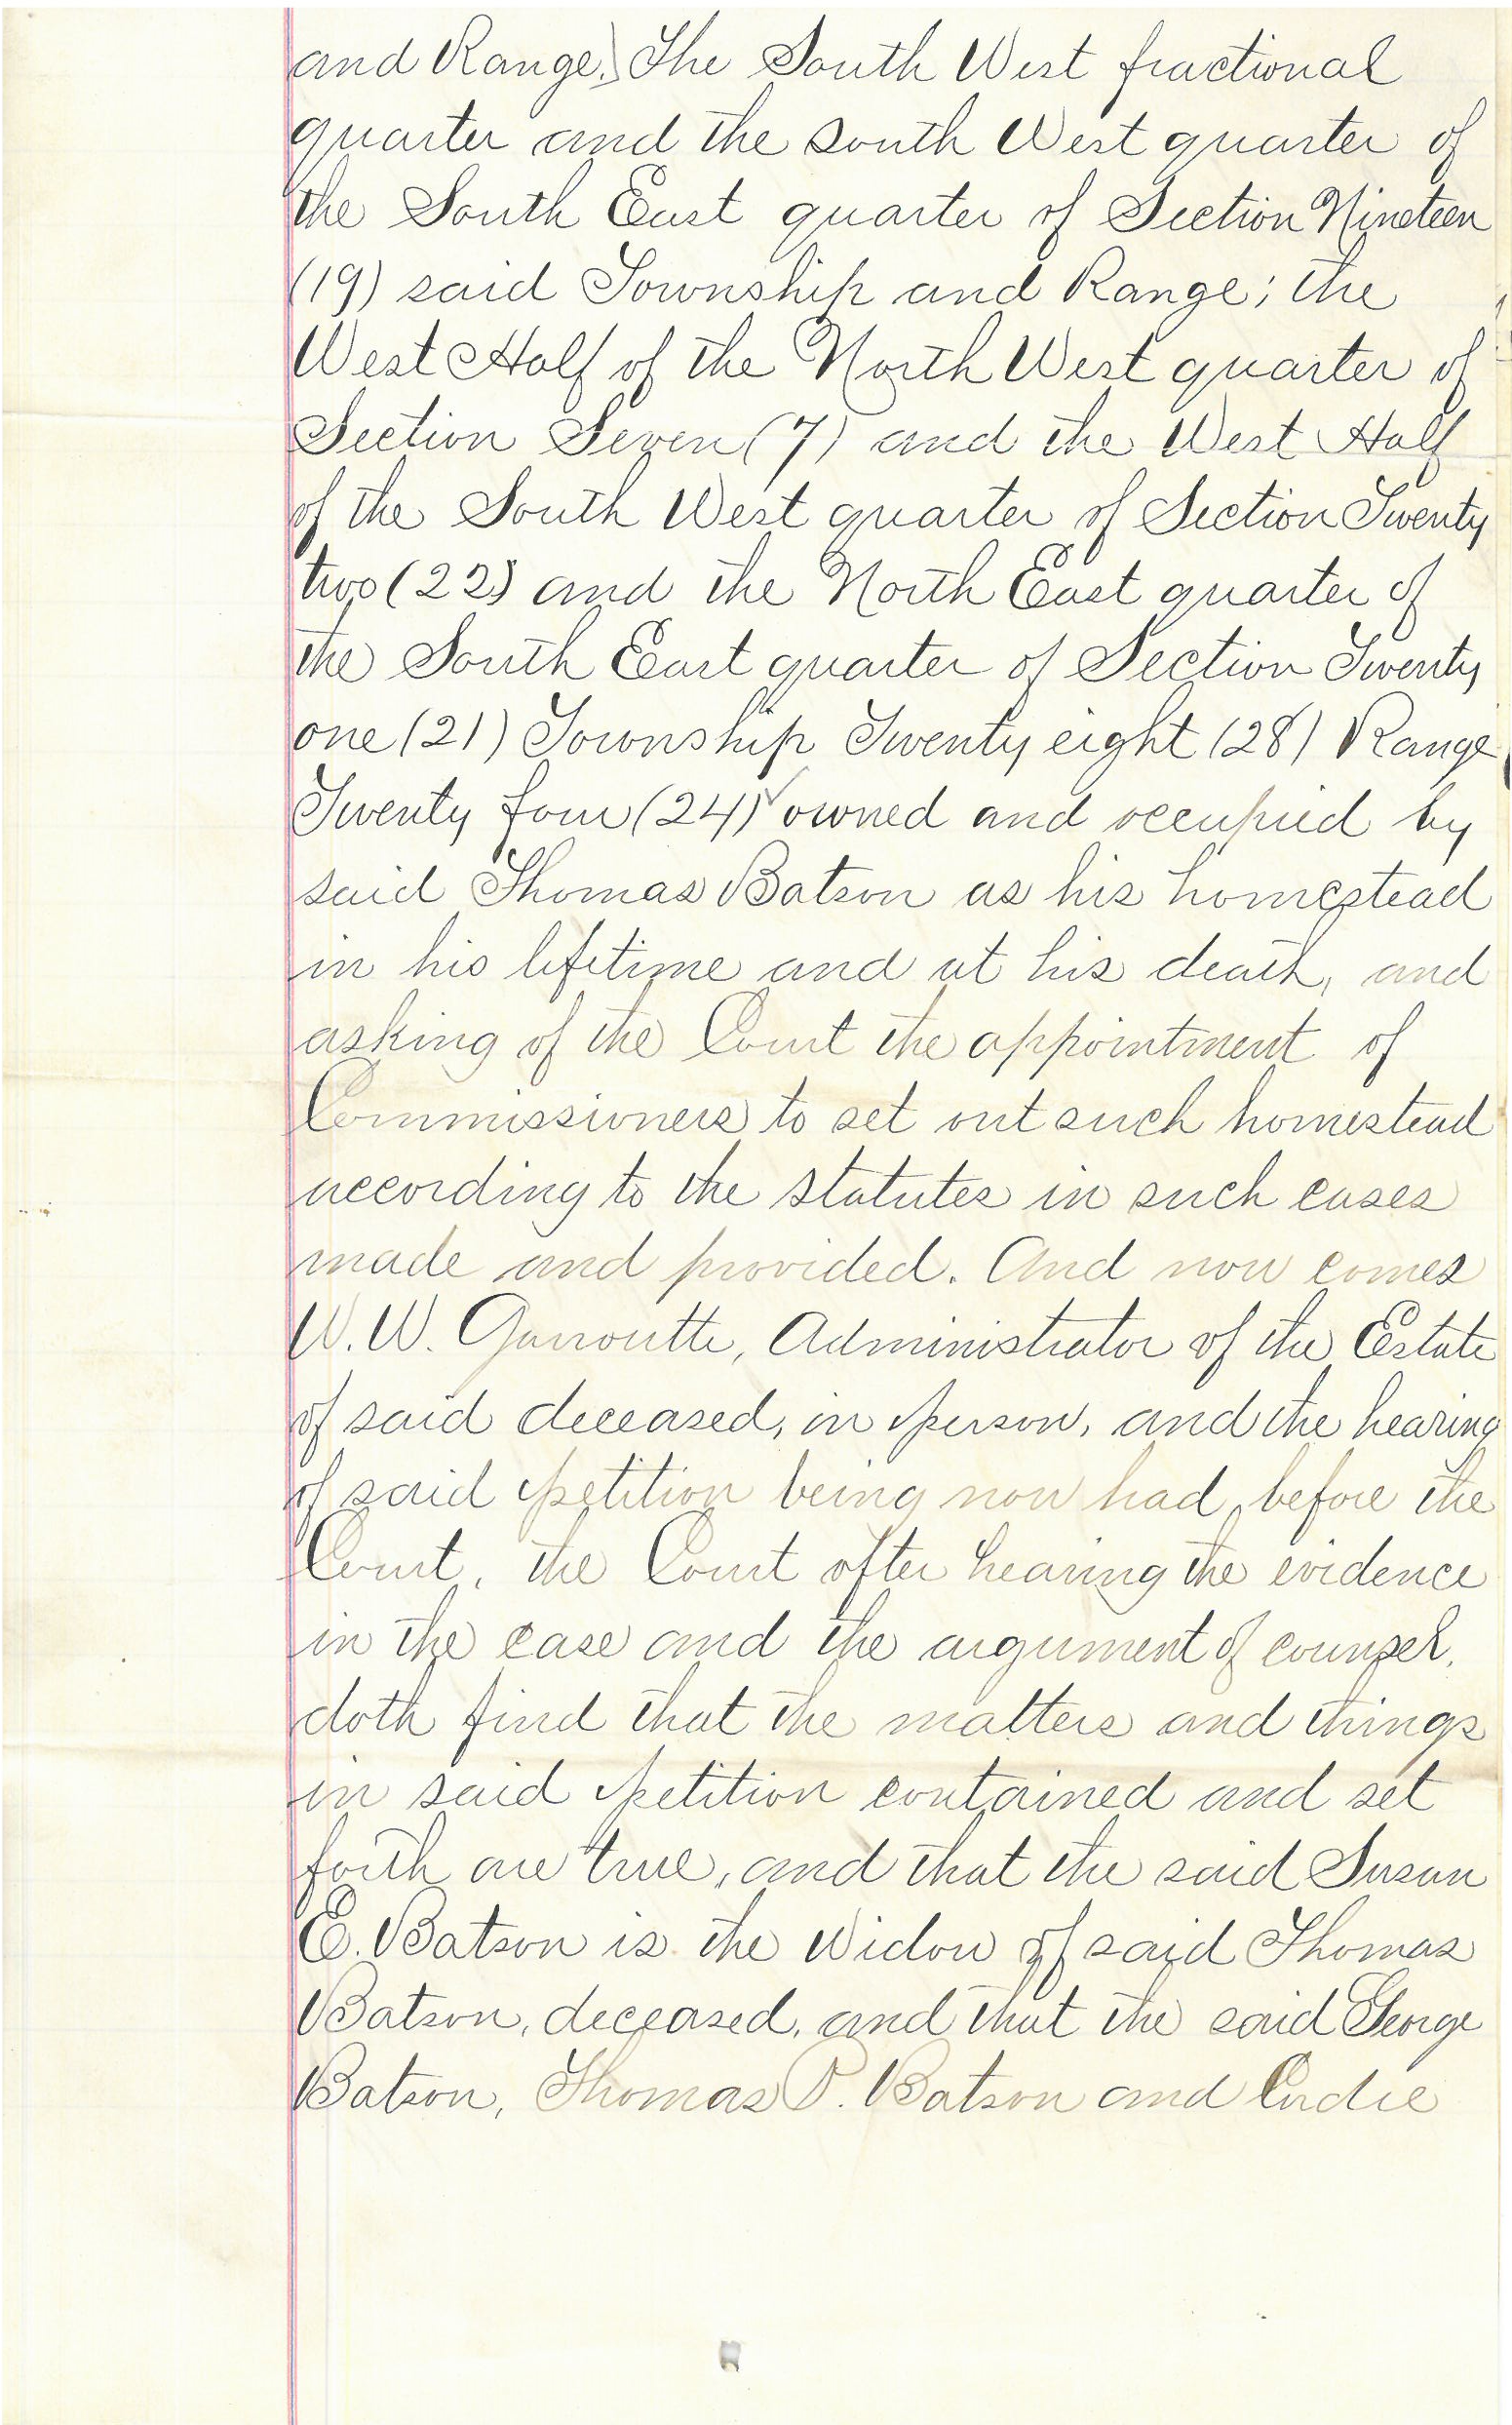 and Range.) The South West fractional
quarter and the south West quarter of
the South East quarter of Section Nineteen
(19) said Township and Range; the
West Half of the North West quarter of
Section Seven (7) and the West Half
of the South West quarter of Section Twenty
two (22) and the North East quarter of
the South East quarter of Section Twenty
one (21) Township Twenty eight (28) Range
Twenty four (24) owned and occupied by
said Thomas Batson as his homestead
in his lifetime and at his death, and
asking of the Court the appointment of
Commissioners to set out such homestead
according to the statutes in such cases
made and provided. And now comes
W. W. Garroutte, Administrator of the Estate
of said deceased, in person, and the hearing
of said petition being now had, before the
Court, the Court after hearing the evidence
in the case and the argument of counsel,
doth find that the matters and things
in said petition contained and set
forth are true, and that the said Susan
E. Batson is the Widow of said Thomas
Batson, deceased, and that the said George
Batson, Thomas P. Batson and